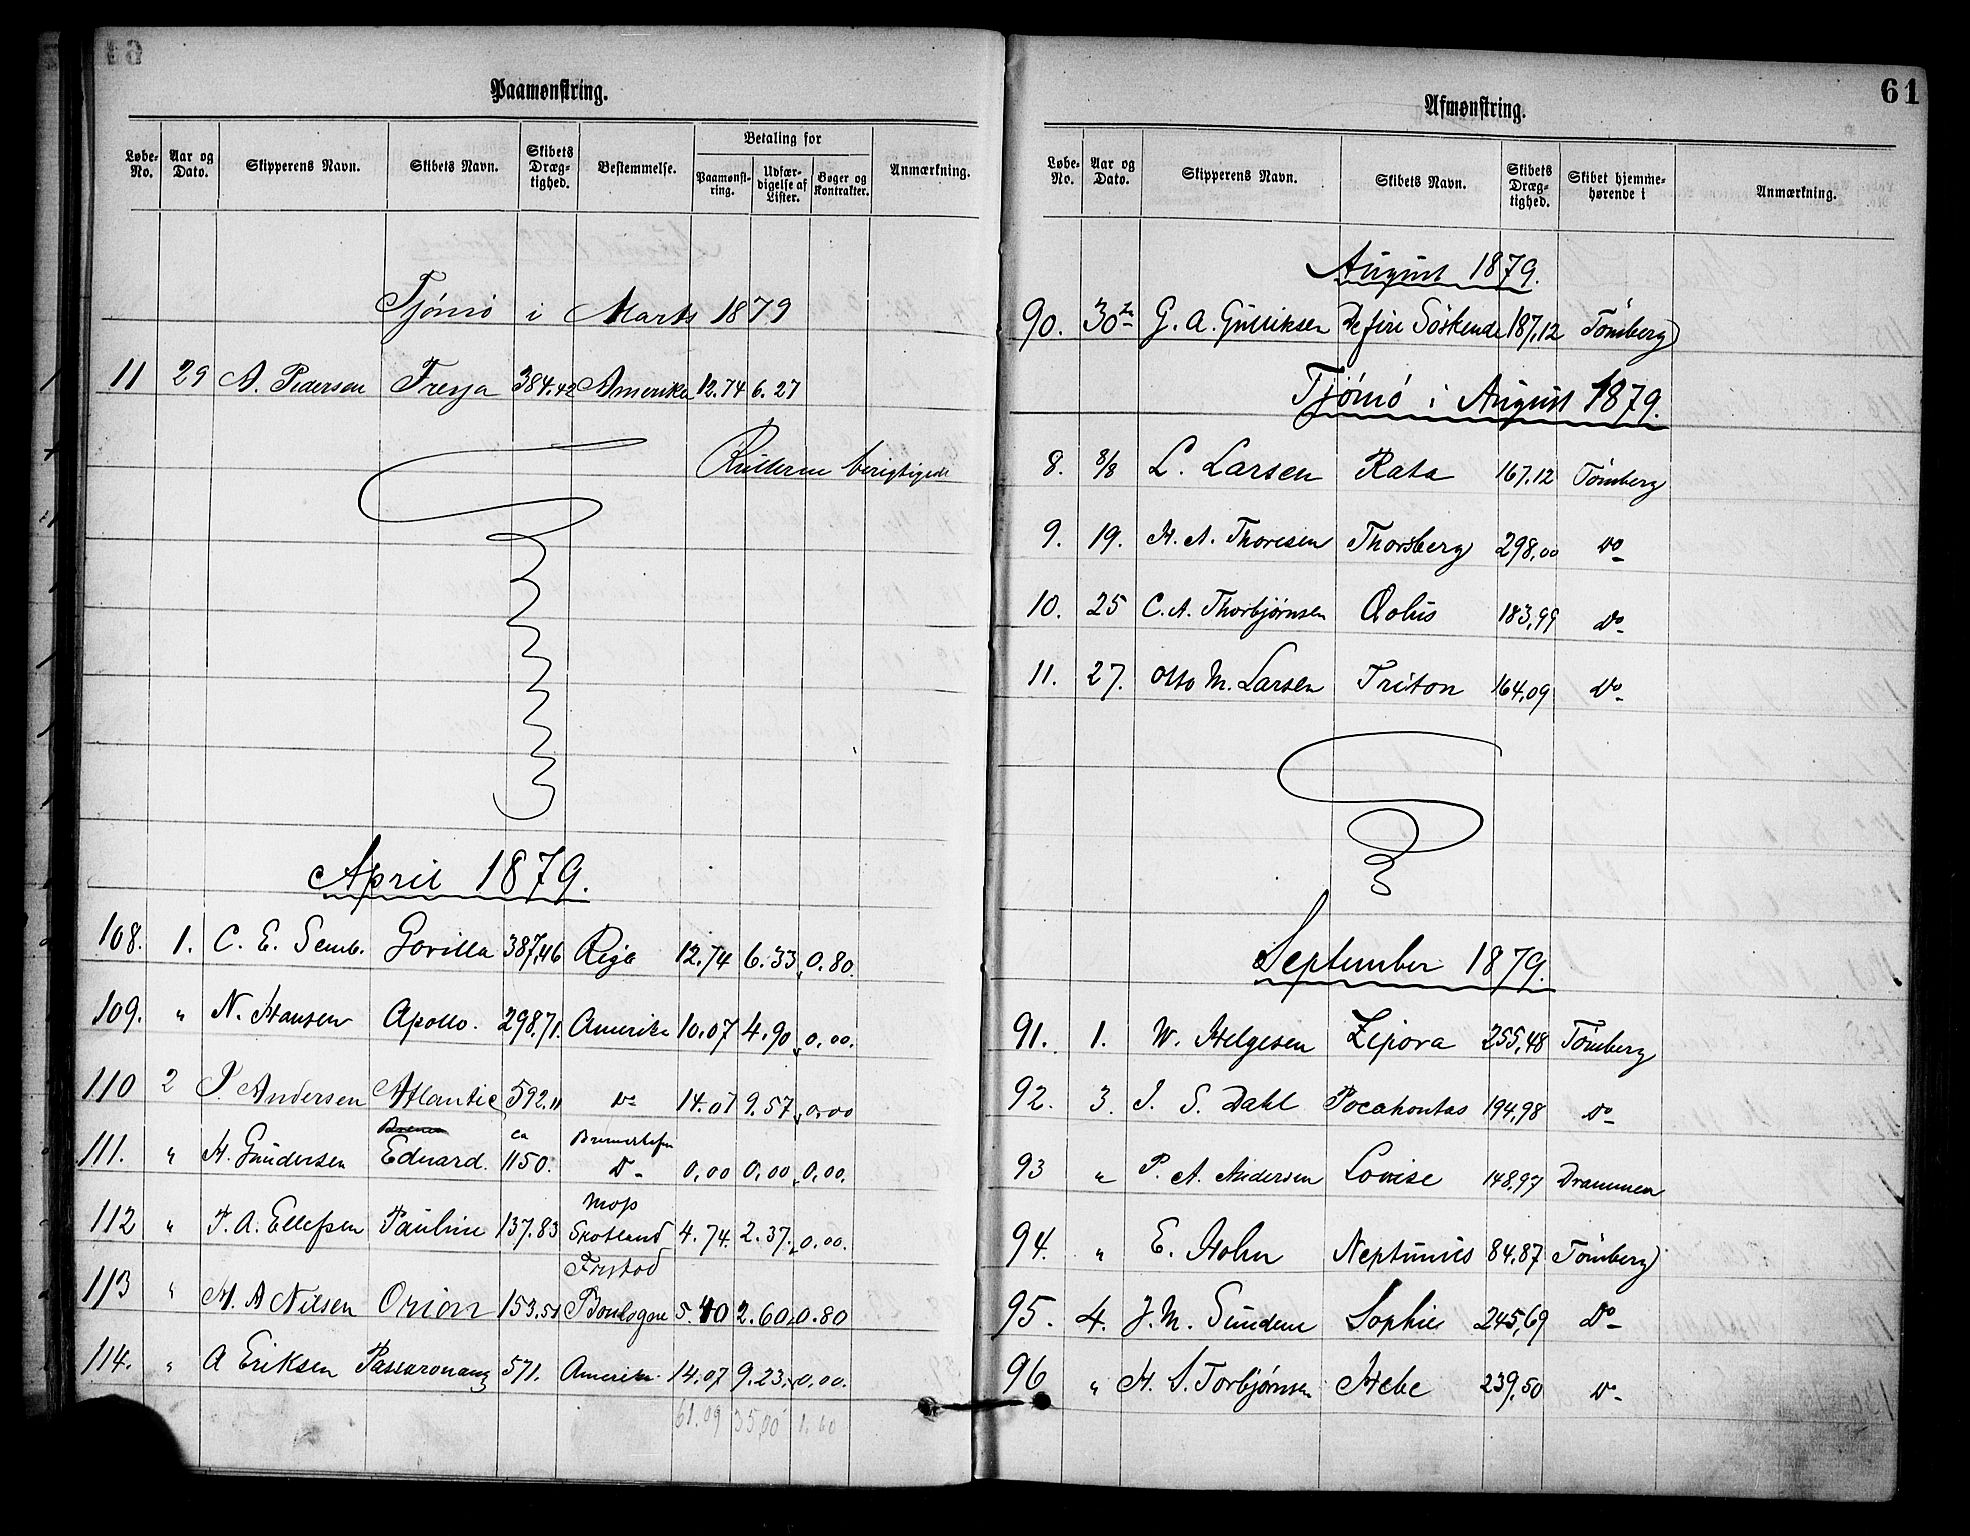 Paamønstring.
Løbe-No. Aar og Dato. Skipperens Navn. Skibets Navn. Skibets Dræg-tighed. Bestemmelse. Betaling for Paamønst-ring. Udfær-digelse af Lister. Bøger og Kontrakter. Anmærkning.
Tjømø i Marts 1879
11 29 A. Pedersen Freyja 384.42 Amerika 12.74 6.27
berigtigede
April 1879.
108. 1. C. E. Semb. Gorilla 387,46 Riga 12.74 6.33 0.80.
109. " N. Hansen Apollo. 298,71. Amerika 10.07 4.90 0.00.
110 2 Andersen Atlantic 592.11 Do 14.07 9.57 0.00
Bremerhafen
111. " H. Gundersen Eduard. ca 1150. Do 0,00 0,00 0,00.
Moss
112 " Ellefsen Pauline 137.83 Skotland 4.74. 2.37. 0.00.
113 " H. A Nilsen Orion 153.51 Boulogne 5.40 2.60 0.80
114. " A Eriksen 571. Amerika 14.07 9.23. 0.00.
61.09 35,00 1.60
61
Afmønstring.
Løbe-No. Aar og Dato. Skipperens Navn. Skibets Navn. Skibets Dræg-tighed. Skibet hjemme-hørende i Anmærkning.
August 1879.
90. 30te G. A. Gulliksen De fire Söskende 187,12 Tönsberg
Tjömö i August 1879.
8. 8/8 L. Larsen Rata 167,12 Tönsberg
9. 19. H. A. Thoresen Thorsberg 298,00 Do
10. 25 C. A. Thorbjørnsen Æolus 183,99 Do
11. 27. Otto M. Larsen Triton 164,09 Do
September 1879.
91. 1. W. Helgesen Zipora 255,48 Tönsberg
92. 3. J. S. Dahl Pocahontas 194,98 Do
93 " P. A. Andersen Lovise 148,97 Drammen
94. " E. Holm Neptunus 84,87 Tönsberg
95. 4. J. M. Sundene Sophie 245,69 Do
96 " H. S. Torbjørnsen Hebe 239,50 Do